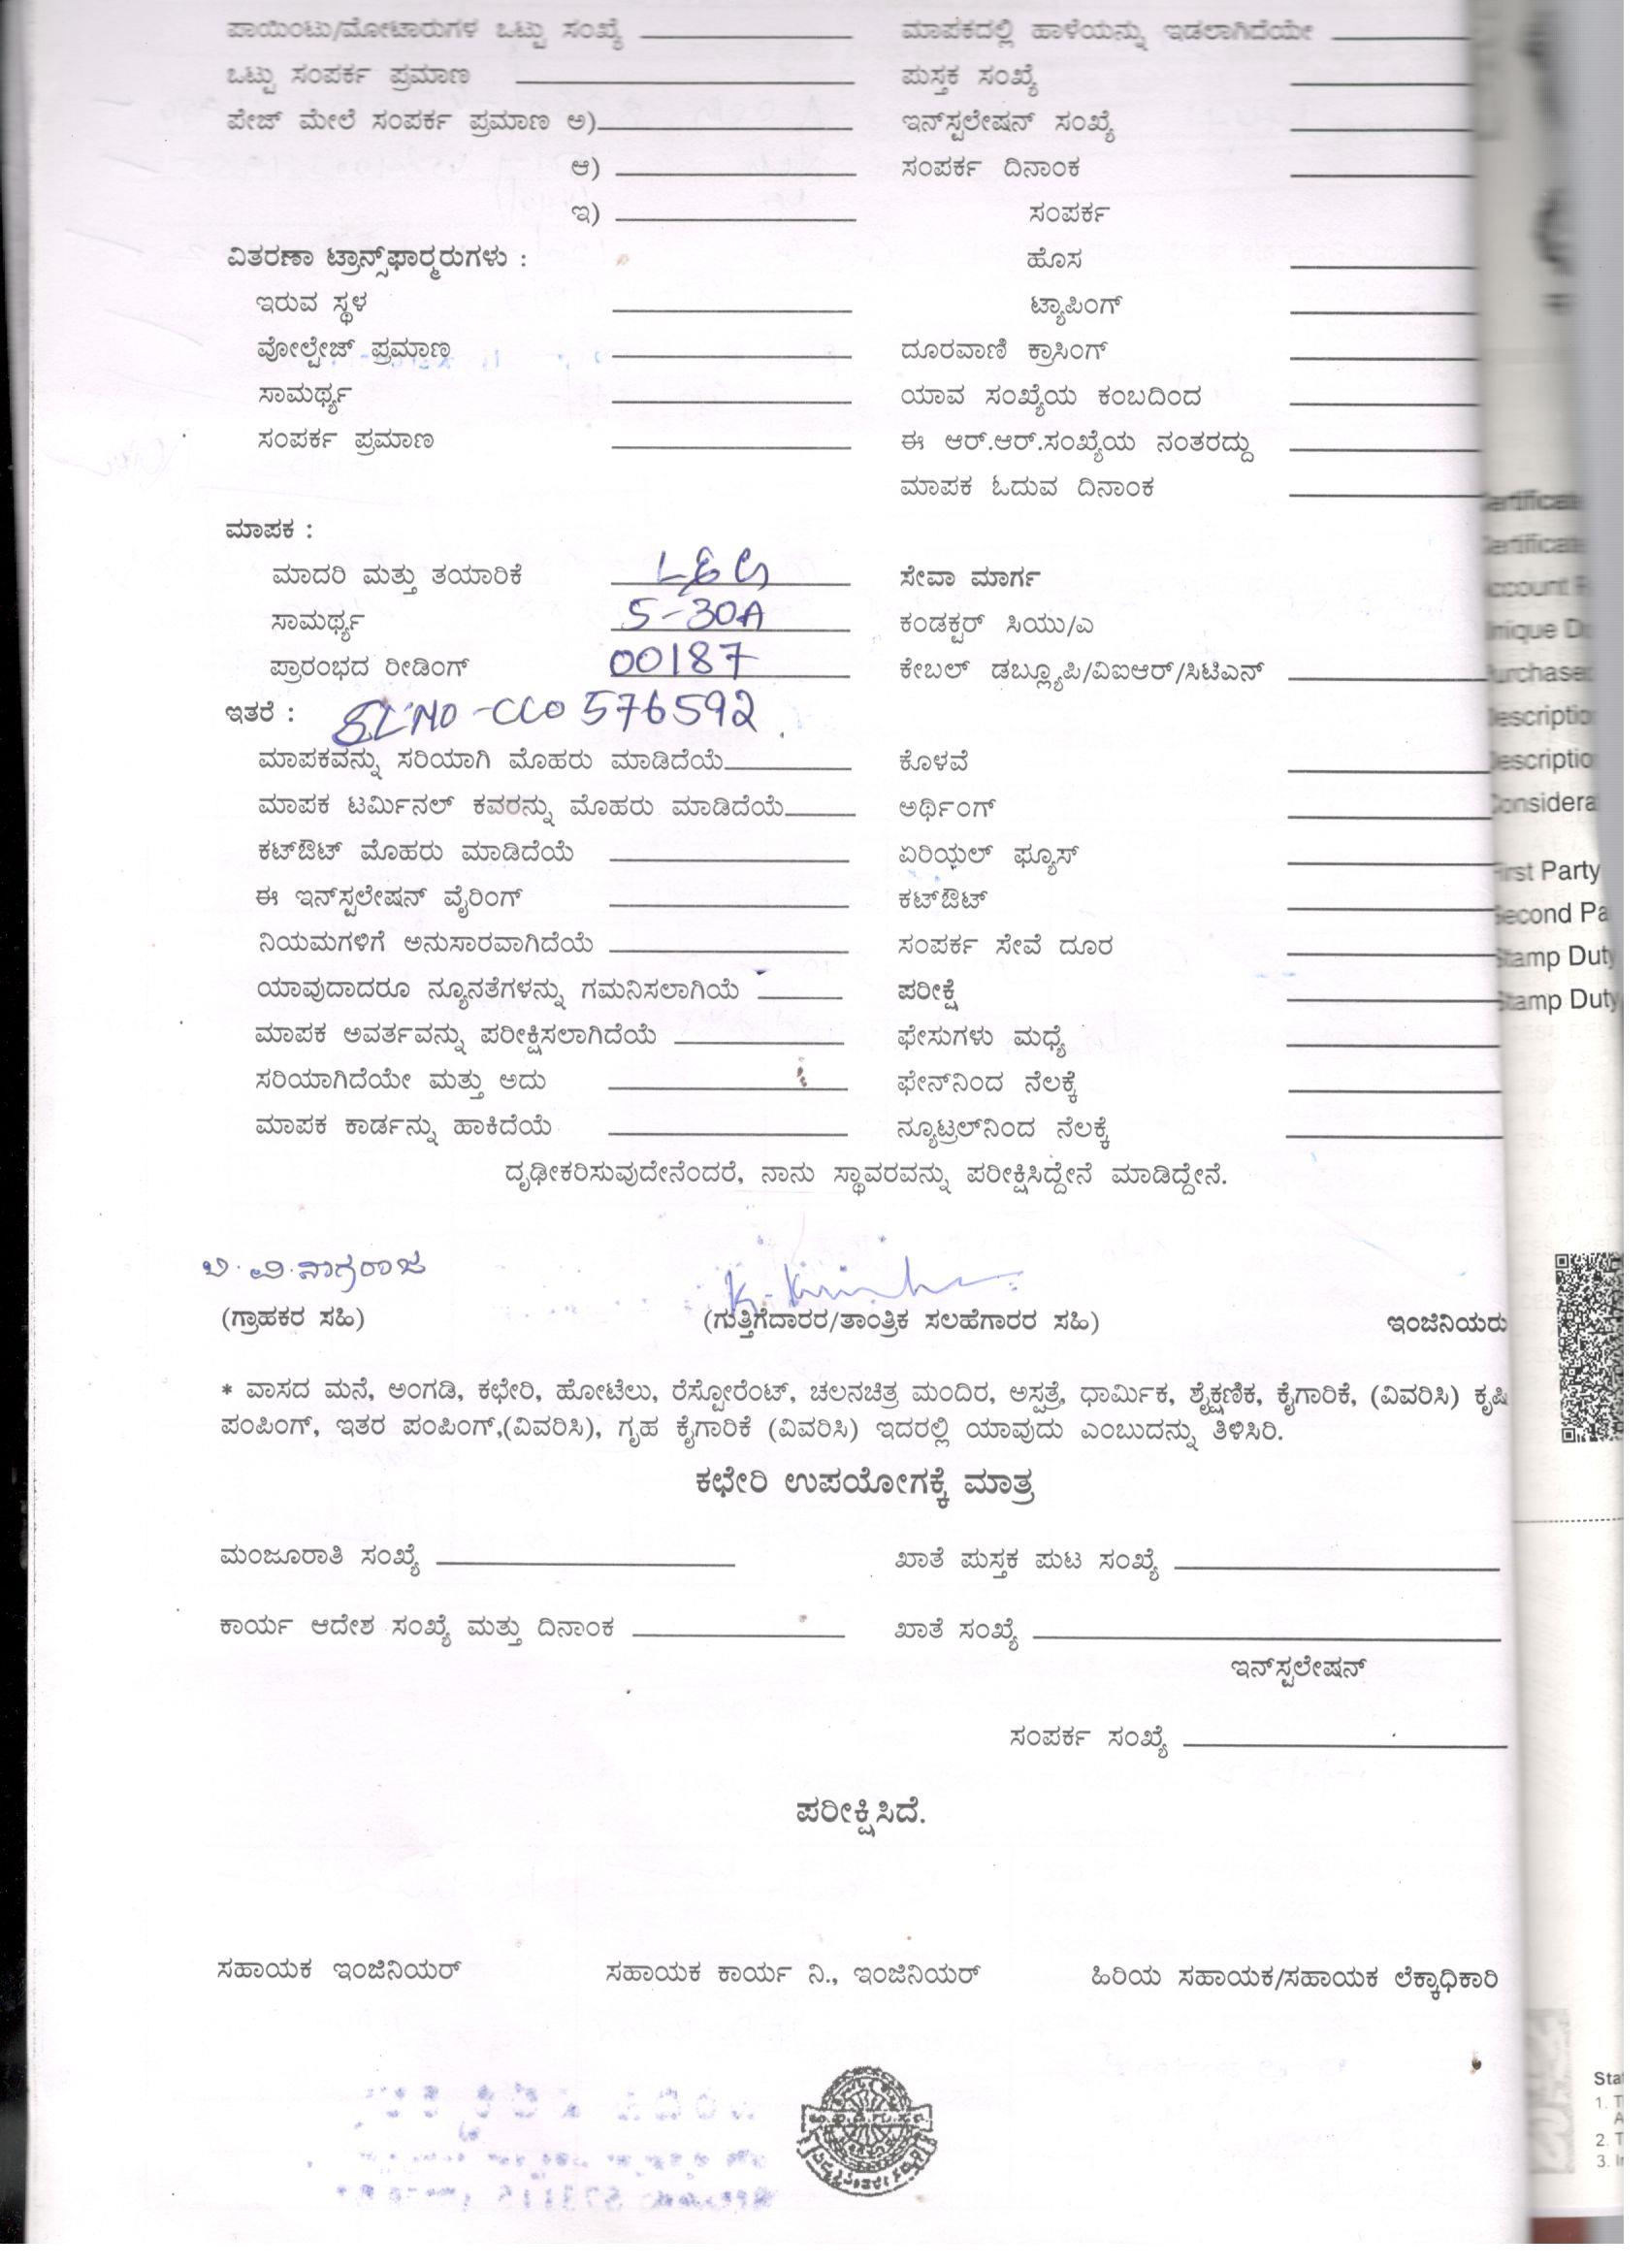 ಪಾಯಿಂಟು/ಮೋಟಾರುಗಳ ಒಟ್ಟು ಸಂಖ್ಯೆ
ಮಾಪಕದಲ್ಲಿ ಹಾಳೆಯನ್ನು ಇಡಲಾಗಿದೆಯೇ
ಒಟ್ಟು ಸಂಪರ್ಕ ಪ್ರಮಾಣ
ಪುಸ್ತಕ ಸಂಖ್ಯೆ
ಪೇಜ್ ಮೇಲೆ ಸಂಪರ್ಕ ಪ್ರಮಾಣ ಅ)
ಇನ್‌ಸ್ಟಲೇಷನ್ ಸಂಖ್ಯೆ
ಆ)
ಸಂಪರ್ಕ ದಿನಾಂಕ
ಇ)
ಸಂಪರ್ಕ
ವಿತರಣಾ ಟ್ರಾನ್ಸ್‌ಫಾರ್‍ಮರುಗಳು :
ಹೊಸ
ಇರುವ ಸ್ಥಳ
ಟ್ಯಾಪಿಂಗ್
ವೋಲ್ಟೇಜ್ ಪ್ರಮಾಣ
ದೂರವಾಣಿ ಕ್ರಾಸಿಂಗ್
ಸಾಮರ್ಥ್ಯ
ಯಾವ ಸಂಖ್ಯೆಯ ಕಂಬದಿಂದ
ಸಂಪರ್ಕ ಪ್ರಮಾಣ
ಈ ಆರ್.ಆರ್.ಸಂಖ್ಯೆಯ ನಂತರದ್ದು
ಮಾಪಕ ಓದುವ ದಿನಾಂಕ
ಮಾಪಕ :
ಮಾದರಿ ಮತ್ತು ತಯಾರಿಕೆ L&G
ಸೇವಾ ಮಾರ್ಗ
ಸಾಮರ್ಥ್ಯ 5-30A
ಕಂಡಕ್ಟರ್ ಸಿಯು/ಎ
ಪ್ರಾರಂಭದ ರೀಡಿಂಗ್ 00187
ಕೇಬಲ್ ಡಬ್ಲ್ಯೂಪಿ/ವಿಐಆರ್/ಸಿಟಿಎನ್
ಇತರೆ : SL NO-CCO 576592
ಮಾಪಕವನ್ನು ಸರಿಯಾಗಿ ಮೊಹರು ಮಾಡಿದೆಯೆ
ಕೊಳವೆ
ಮಾಪಕ ಟರ್ಮಿನಲ್ ಕವರನ್ನು ಮೊಹರು ಮಾಡಿದೆಯೆ
ಅರ್ಥಿಂಗ್
ಕಟ್‌ಔಟ್ ಮೊಹರು ಮಾಡಿದೆಯೆ
ಏರಿಯಲ್ ಫ್ಯೂಸ್
ಈ ಇನ್‌ಸ್ಟಲೇಷನ್ ವೈರಿಂಗ್
ಕಟ್‌ಔಟ್
ನಿಯಮಗಳಿಗೆ ಅನುಸಾರವಾಗಿದೆಯೆ
ಸಂಪರ್ಕ ಸೇವೆ ದೂರ
ಯಾವುದಾದರೂ ನ್ಯೂನತೆಗಳನ್ನು ಗಮನಿಸಲಾಗಿಯೆ
ಪರೀಕ್ಷೆ
ಮಾಪಕ ಅವರ್ತವನ್ನು ಪರೀಕ್ಷಿಸಲಾಗಿದೆಯೆ
ಫೇಸುಗಳು ಮಧ್ಯೆ
ಸರಿಯಾಗಿದೆಯೇ ಮತ್ತು ಅದು
ಫೇನ್‌ನಿಂದ ನೆಲಕ್ಕೆ
ಮಾಪಕ ಕಾರ್ಡನ್ನು ಹಾಕಿದೆಯೆ
ನ್ಯೂಟ್ರಲ್‌ನಿಂದ ನೆಲಕ್ಕೆ
ದೃಢೀಕರಿಸುವುದೇನೆಂದರೆ, ನಾನು ಸ್ಥಾವರವನ್ನು ಪರೀಕ್ಷಿಸಿದ್ದೇನೆ ಮಾಡಿದ್ದೇನೆ.
ವಿ.ನಾಗರಾಜ
(ಗ್ರಾಹಕರ ಸಹಿ)
(ಗುತ್ತಿಗೆದಾರರ/ತಾಂತ್ರಿಕ ಸಲಹೆಗಾರರ ಸಹಿ)
ಇಂಜಿನಿಯರು
* ವಾಸದ ಮನೆ, ಅಂಗಡಿ, ಕಛೇರಿ, ಹೋಟೆಲು, ರೆಸ್ಟೋರೆಂಟ್, ಚಲನಚಿತ್ರ ಮಂದಿರ, ಅಸ್ಪತ್ರೆ, ಧಾರ್ಮಿಕ, ಶೈಕ್ಷಣಿಕ, ಕೈಗಾರಿಕೆ, (ವಿವರಿಸಿ) ಕೃಷಿ
ಪಂಪಿಂಗ್, ಇತರ ಪಂಪಿಂಗ್,(ವಿವರಿಸಿ), ಗೃಹ ಕೈಗಾರಿಕೆ (ವಿವರಿಸಿ) ಇದರಲ್ಲಿ ಯಾವುದು ಎಂಬುದನ್ನು ತಿಳಿಸಿರಿ.
ಕಛೇರಿ ಉಪಯೋಗಕ್ಕೆ ಮಾತ್ರ
ಮಂಜೂರಾತಿ ಸಂಖ್ಯೆ
ಖಾತೆ ಪುಸ್ತಕ ಪುಟ ಸಂಖ್ಯೆ
ಕಾರ್ಯ ಆದೇಶ ಸಂಖ್ಯೆ ಮತ್ತು ದಿನಾಂಕ
ಖಾತೆ ಸಂಖ್ಯೆ
ಇನ್‌ಸ್ಟಲೇಷನ್
ಸಂಪರ್ಕ ಸಂಖ್ಯೆ
ಪರೀಕ್ಷಿಸಿದೆ.
ಸಹಾಯಕ ಇಂಜಿನಿಯರ್
ಸಹಾಯಕ ಕಾರ್ಯ ನಿ., ಇಂಜಿನಿಯರ್
ಹಿರಿಯ ಸಹಾಯಕ/ಸಹಾಯಕ ಲೆಕ್ಕಾಧಿಕಾರಿ
First Party
Stamp Duty
Stamp Duty